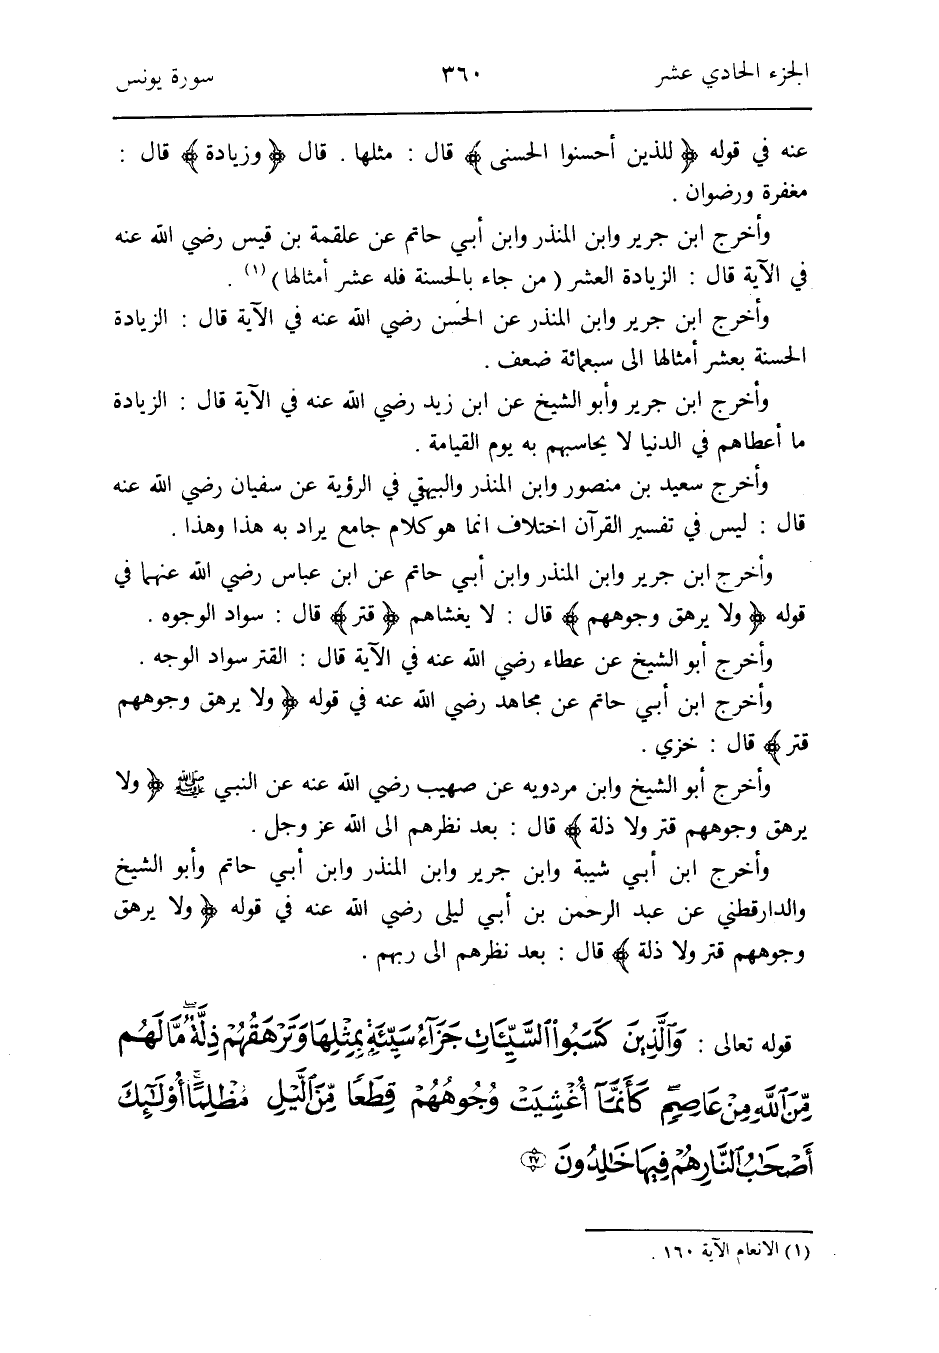 الجزء الحادي عشر ٣٦٠ سورة يونس
عنه في قوله ﴿ للذين أحسنوا الحسنى ﴾ قال : مثلها . قال ﴿ وزيادة ﴾ قال :
مغفرة ورضوان .
وأخرج ابن جرير وابن المنذر وابن أبي حاتم عن علقمة بن قيس رضي الله عنه
في الآية قال : الزيادة العشر ( من جاء بالحسنة فله عشر أمثالها ) (١) .
وأخرج ابن جرير وابن المنذر عن الحَسن رضي الله عنه في الآية قال : الزيادة
الحسنة بعشر أمثالها الى سبعمائة ضعف .
وأخرج ابن جرير وأبو الشيخ عن ابن زيد رضي الله عنه في الآية قال : الزيادة
ما أعطاهم في الدنيا لا يحاسبهم به يوم القيامة .
وأخرج سعيد بن منصور وابن المنذر والبيهقي في الرؤية عن سفيان رضي الله عنه
قال : ليس في تفسير القرآن اختلاف انما هو كلام جامع يراد به هذا وهذا .
وأخرج ابن جرير وابن المنذر وابن أبي حاتم عن ابن عباس رضي الله عنهما في
قوله ﴿ ولا يرهق وجوههم ﴾ قال : لا يغشاهم ﴿ قتر ﴾ قال : سواد الوجوه .
وأخرج أبو الشيخ عن عطاء رضي الله عنه في الآية قال : القتر سواد الوجه .
وأخرج ابن أبي حاتم عن مجاهد رضي الله عنه في قوله ﴿ ولا يرهق وجوههم
قتر ﴾ قال : خزي .
وأخرج أبو الشيخ وابن مردويه عن صهيب رضي الله عنه عن النبي ﷺ ﴿ ولا
يرهق وجوههم قتر ولا ذلة ﴾ قال : بعد نظرهم الى الله عز وجل .
وأخرج ابن أبي شيبة وابن جرير وابن المنذر وابن أبي حاتم وأبو الشيخ
والدارقطني عن عبد الرحمن بن أبي ليلى رضي الله عنه في قوله ﴿ ولا يرهق
وجوههم قتر ولا ذلة ﴾ قال : بعد نظرهم الى ربهم .
قوله تعالى : وَٱلَّذِينَ كَسَبُوا۟ ٱلسَّيِّـَٔاتِ جَزَآءُ سَيِّئَةٍۭ بِمِثْلِهَا وَتَرْهَقُهُمْ ذِلَّةٌۖ مَّا لَهُم
مِّنَ ٱللَّهِ مِنْ عَاصِمٍۖ كَأَنَّمَآ أُغْشِيَتْ وُجُوهُهُمْ قِطَعًا مِّنَ ٱلَّيْلِ مُظْلِمًاۚ أُو۟لَـٰٓئِكَ
أَصْحَـٰبُ ٱلنَّارِ هُمْ فِيهَا خَـٰلِدُونَ ٢٧
(١) الانعام الآية ١٦٠ .